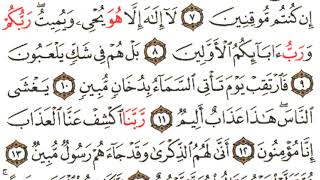 إِن كُنتُم مُّوقِنِينَ ٧ لَآ إِلَٰهَ إِلَّا هُوَ يُحْىِۦ وَيُمِيتُ ۖ رَبُّكُمْ
وَرَبُّ ءَابَآئِكُمُ ٱلْأَوَّلِينَ ٨ بَلْ هُمْ فِى شَكٍّ يَلْعَبُونَ
٩ فَٱرْتَقِبْ يَوْمَ تَأْتِى ٱلسَّمَآءُ بِدُخَانٍ مُّبِينٍ ١٠ يَغْشَى
ٱلنَّاسَ ۖ هَٰذَا عَذَابٌ أَلِيمٌ ١١ رَّبَّنَا ٱكْشِفْ عَنَّا ٱلْعَذَابَ
إِنَّا مُؤْمِنُونَ ١٢ أَنَّىٰ لَهُمُ ٱلذِّكْرَىٰ وَقَدْ جَآءَهُمْ رَسُولٌ مُّبِينٌ ١٣